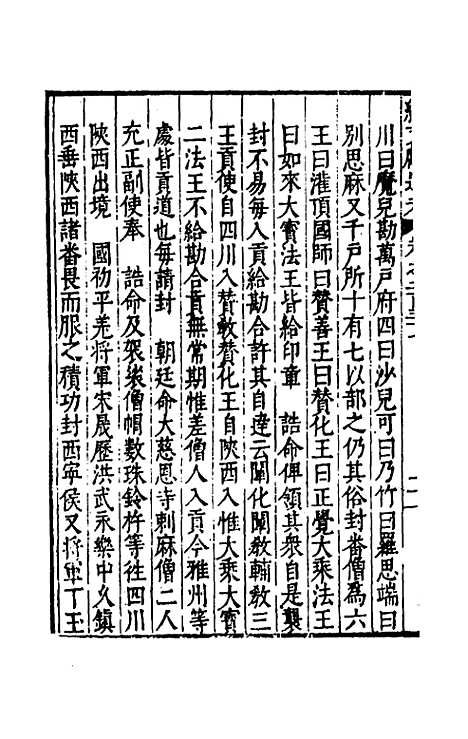 川曰魔兒勘萬戶府四曰沙兒可曰乃竹曰羅思端曰
別思麻又千戶所十有七以部之仍其俗封番僧爲六
王曰灌頂國師曰贊善王曰贊化王曰正覺大乘法王
曰如來大寶法王皆給印章　誥命俾領其衆自是襲
封不易每入貢給勘合許其自達云闡化闡敎輔敎三
王貢使自四川入贊善贊化王自陝西入惟大乘大寶
二法王不給勘合貢無常期惟差僧人入貢今雅州等
處皆貢道也每請封　朝廷命大慈恩寺剌麻僧二人
充正副使奉　誥命及袈裟僧帽數珠鈴杵等徃四川
陝西出境　國初平羌將軍宋晟歷洪武永樂中久鎮
西垂陝西諸番畏而服之積功封西寧侯又將軍丁玉